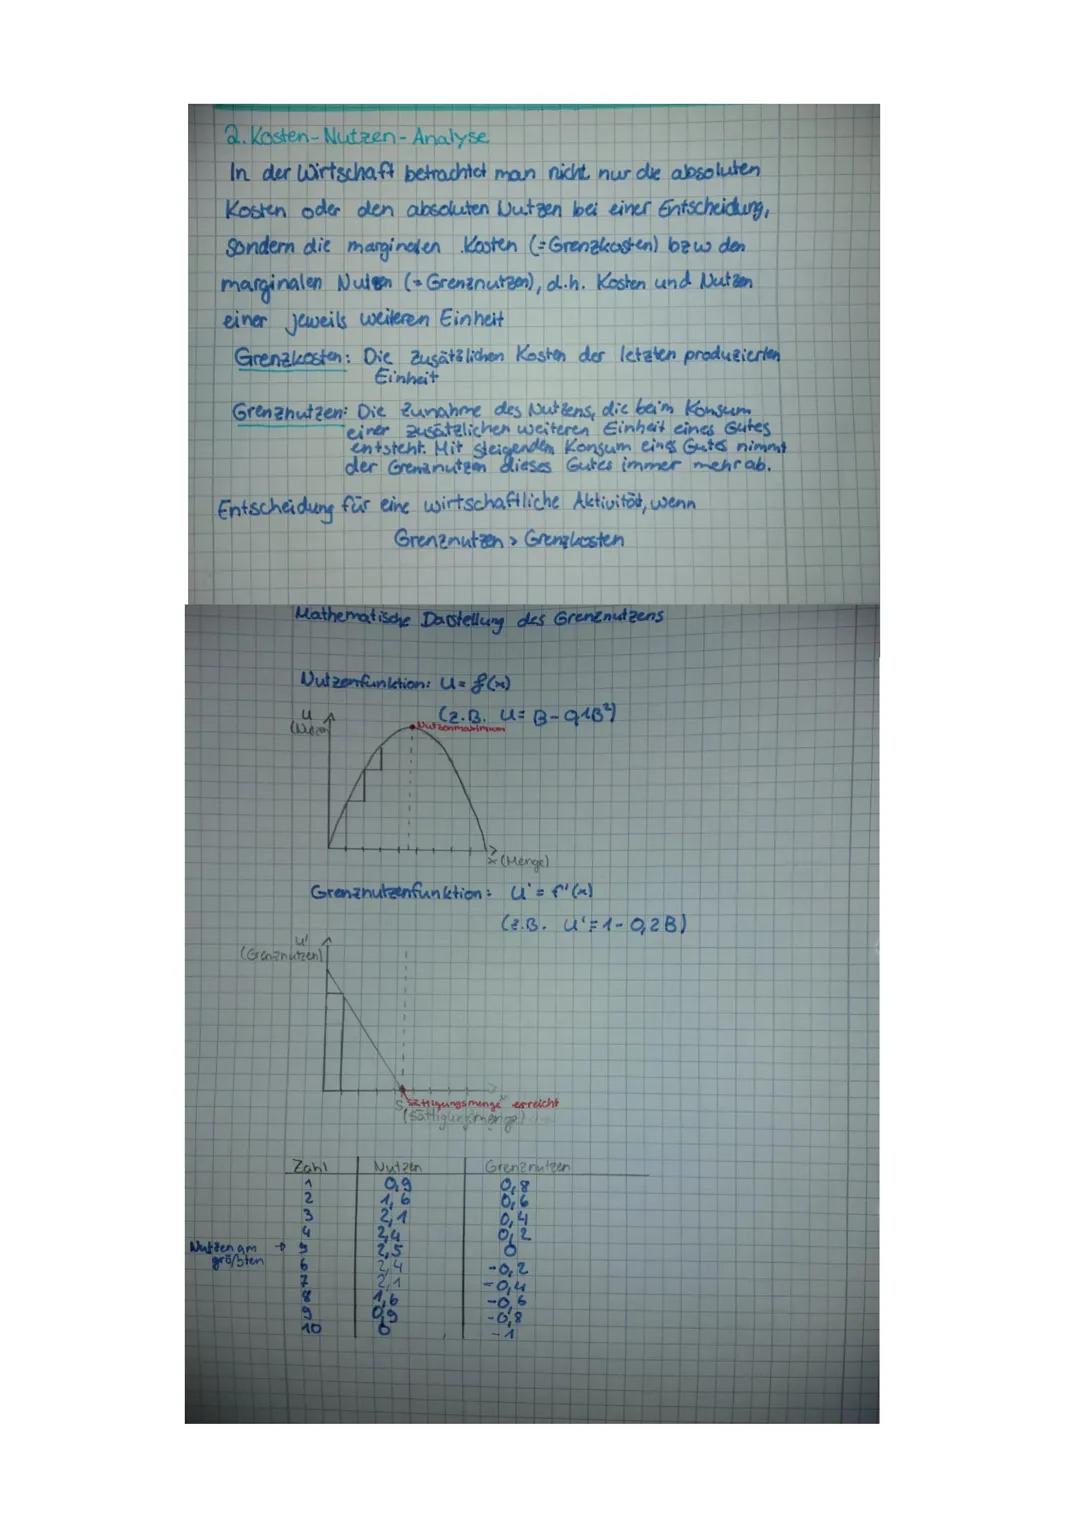 2. Kosten-Nutzen-Analyse
In der Wirtschaft betrachtet man nicht nur die absoluten
Kosten oder den absoluten Nutzen bei einer Entscheidung,
sondern die marginalen Kosten (=Grenzkosten) bzw den
marginalen Nutzen (=Grenznutzen), d.h. Kosten und Nutzen
einer jeweils weiteren Einheit
Grenzkosten: Die zusätzlichen Kosten der letzten produzierten
Einheit
Grenznutzen: Die Zunahme des Nutzens, die beim Konsum
einer zusätzlichen weiteren Einheit eines Gutes
entsteht. Mit steigendem Konsum eines Gutes nimmt
der Grenznutzen dieses Gutes immer mehr ab.
Entscheidung für eine wirtschaftliche Aktivität, wenn
Grenznutzen > Grenzkosten
Mathematische Darstellung des Grenznutzens
Nutzenfunktion: U = f(x)
(z.B. U = B - 0,1B²)
U
(Nutzen)
Nutzenmaximum
x (Menge)
Grenznutzenfunktion: U' = f'(x)
(z.B. U' = 1 - 0,2B)
U'
(Grenznutzen)
Sättigungsmenge erreicht
(Sättigungsmenge)
Zahl Nutzen Grenznutzen
1 0,9 0,8
2 1,6 0,6
3 2,1 0,4
4 2,4 0,2
Nutzen am → 5 2,5 0
größten 6 2,4 -0,2
7 2,1 -0,4
8 1,6 -0,6
9 0,9 -0,8
10 0 -1